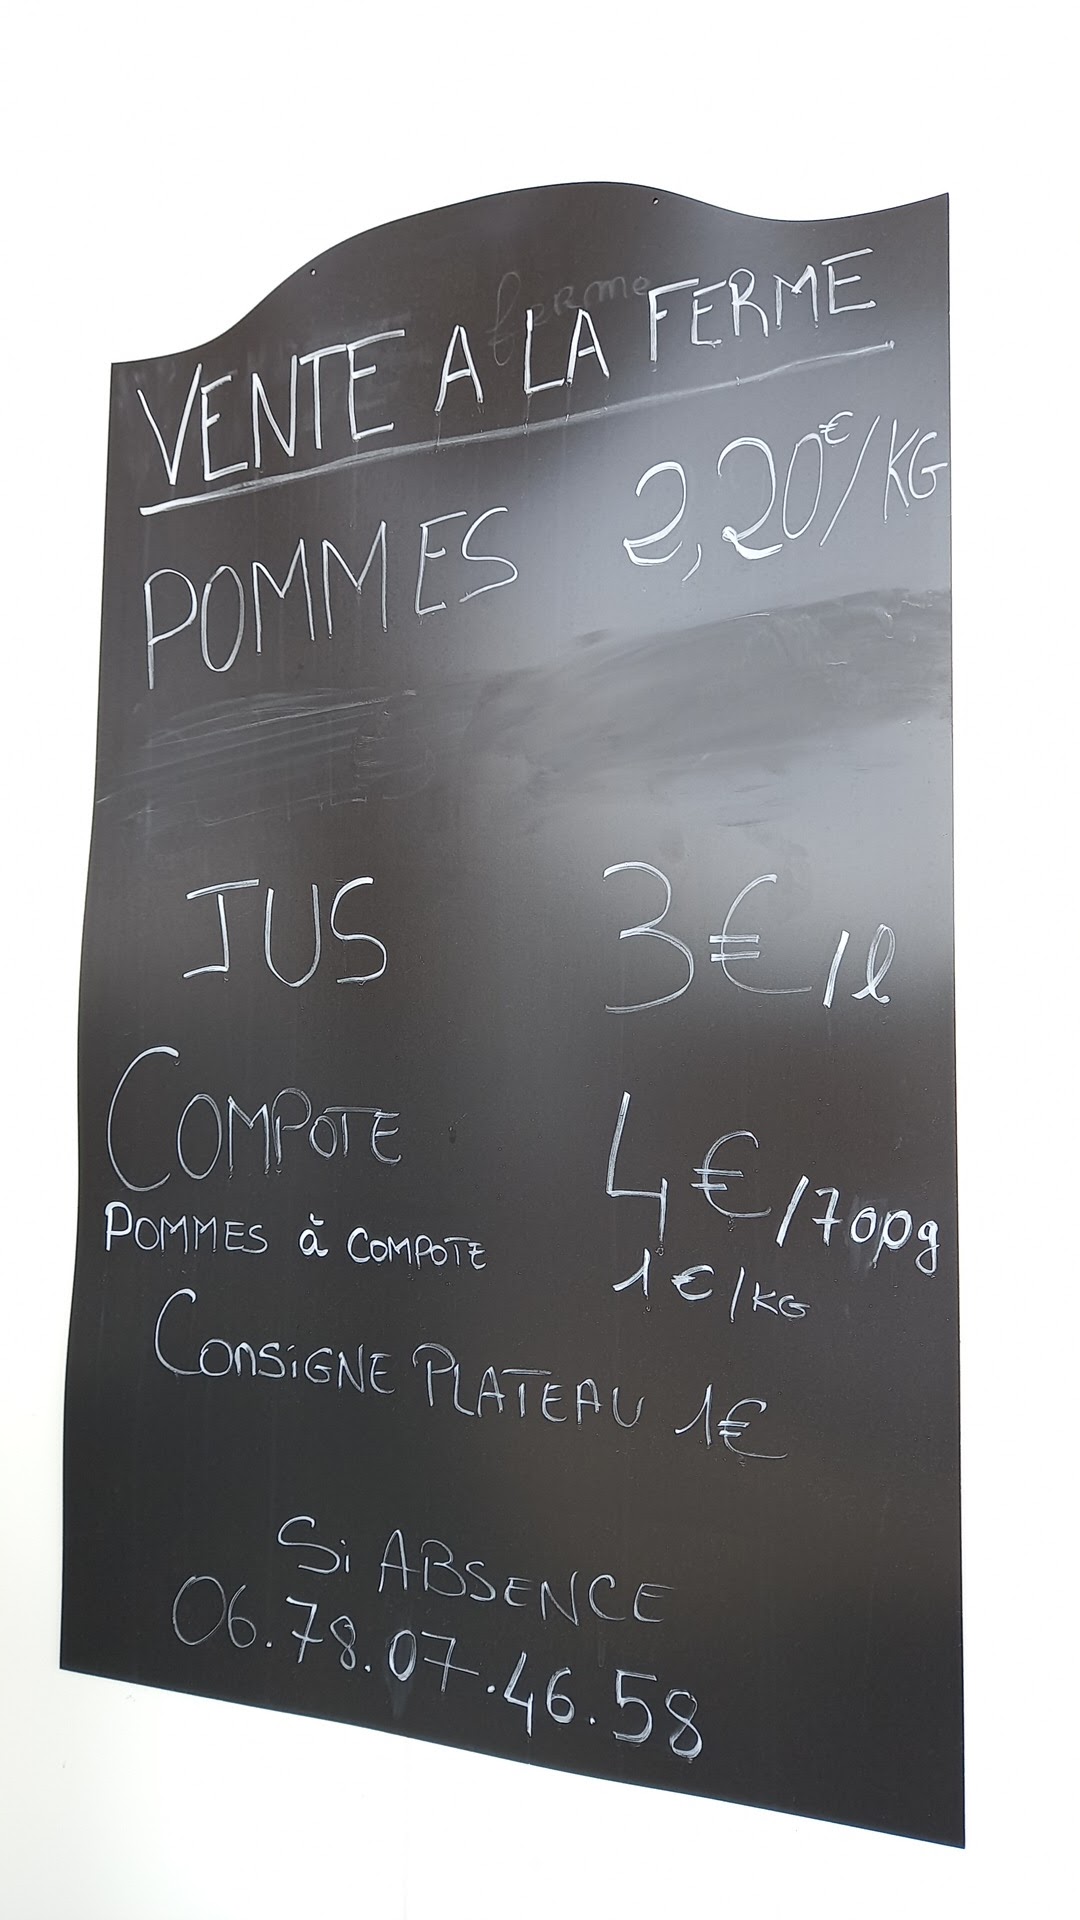 VENTE A LA FERME
ferme
POMMES 2,20€/KG
JUS 3€/l
COMPOTE 4€/700g
POMMES à COMPOTE 1€/KG
CONSIGNE PLATEAU 1€
Si ABSENCE
06.78.07.46.58